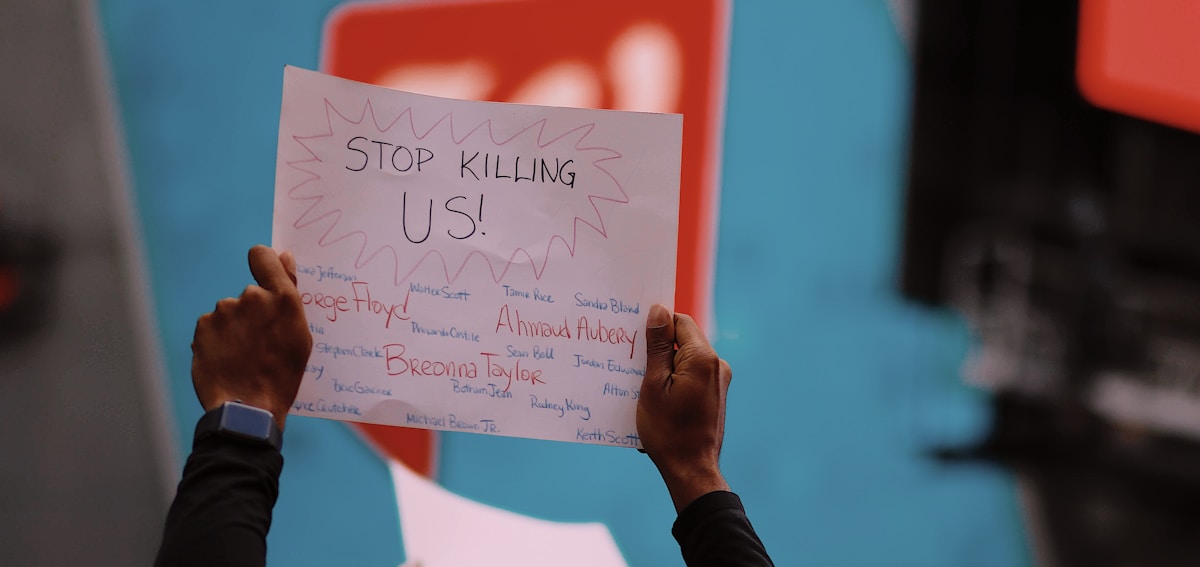 STOP KILLING
US!
Jefferson Walter Scott Tamir Rice Sandra Bland
orge Floyd Ahmaud Aubery
Philando Castile
Stephon Clark Breonna Taylor Sean Bell Jordan Edwards
Eric Garner Botham Jean Rodney King Alton
Crutcher Michael Brown JR. Keith Scott